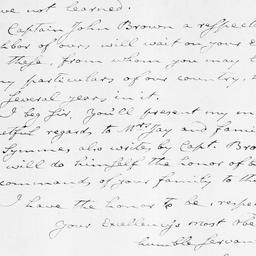 ve not learned.
Captain John Brown a respecta
bor of ours will wait on your E
these, from whom you may
ny particulars of our country,
several years in it.
I beg Sir, You'll present my m
etful regards to Mrs. Jay and fami
Symmes also writes by Capt. Bro
will do himself the honor of b
commands of your family to th
I have the honor to be, respec
Your Excellency's most obe
humble Servan